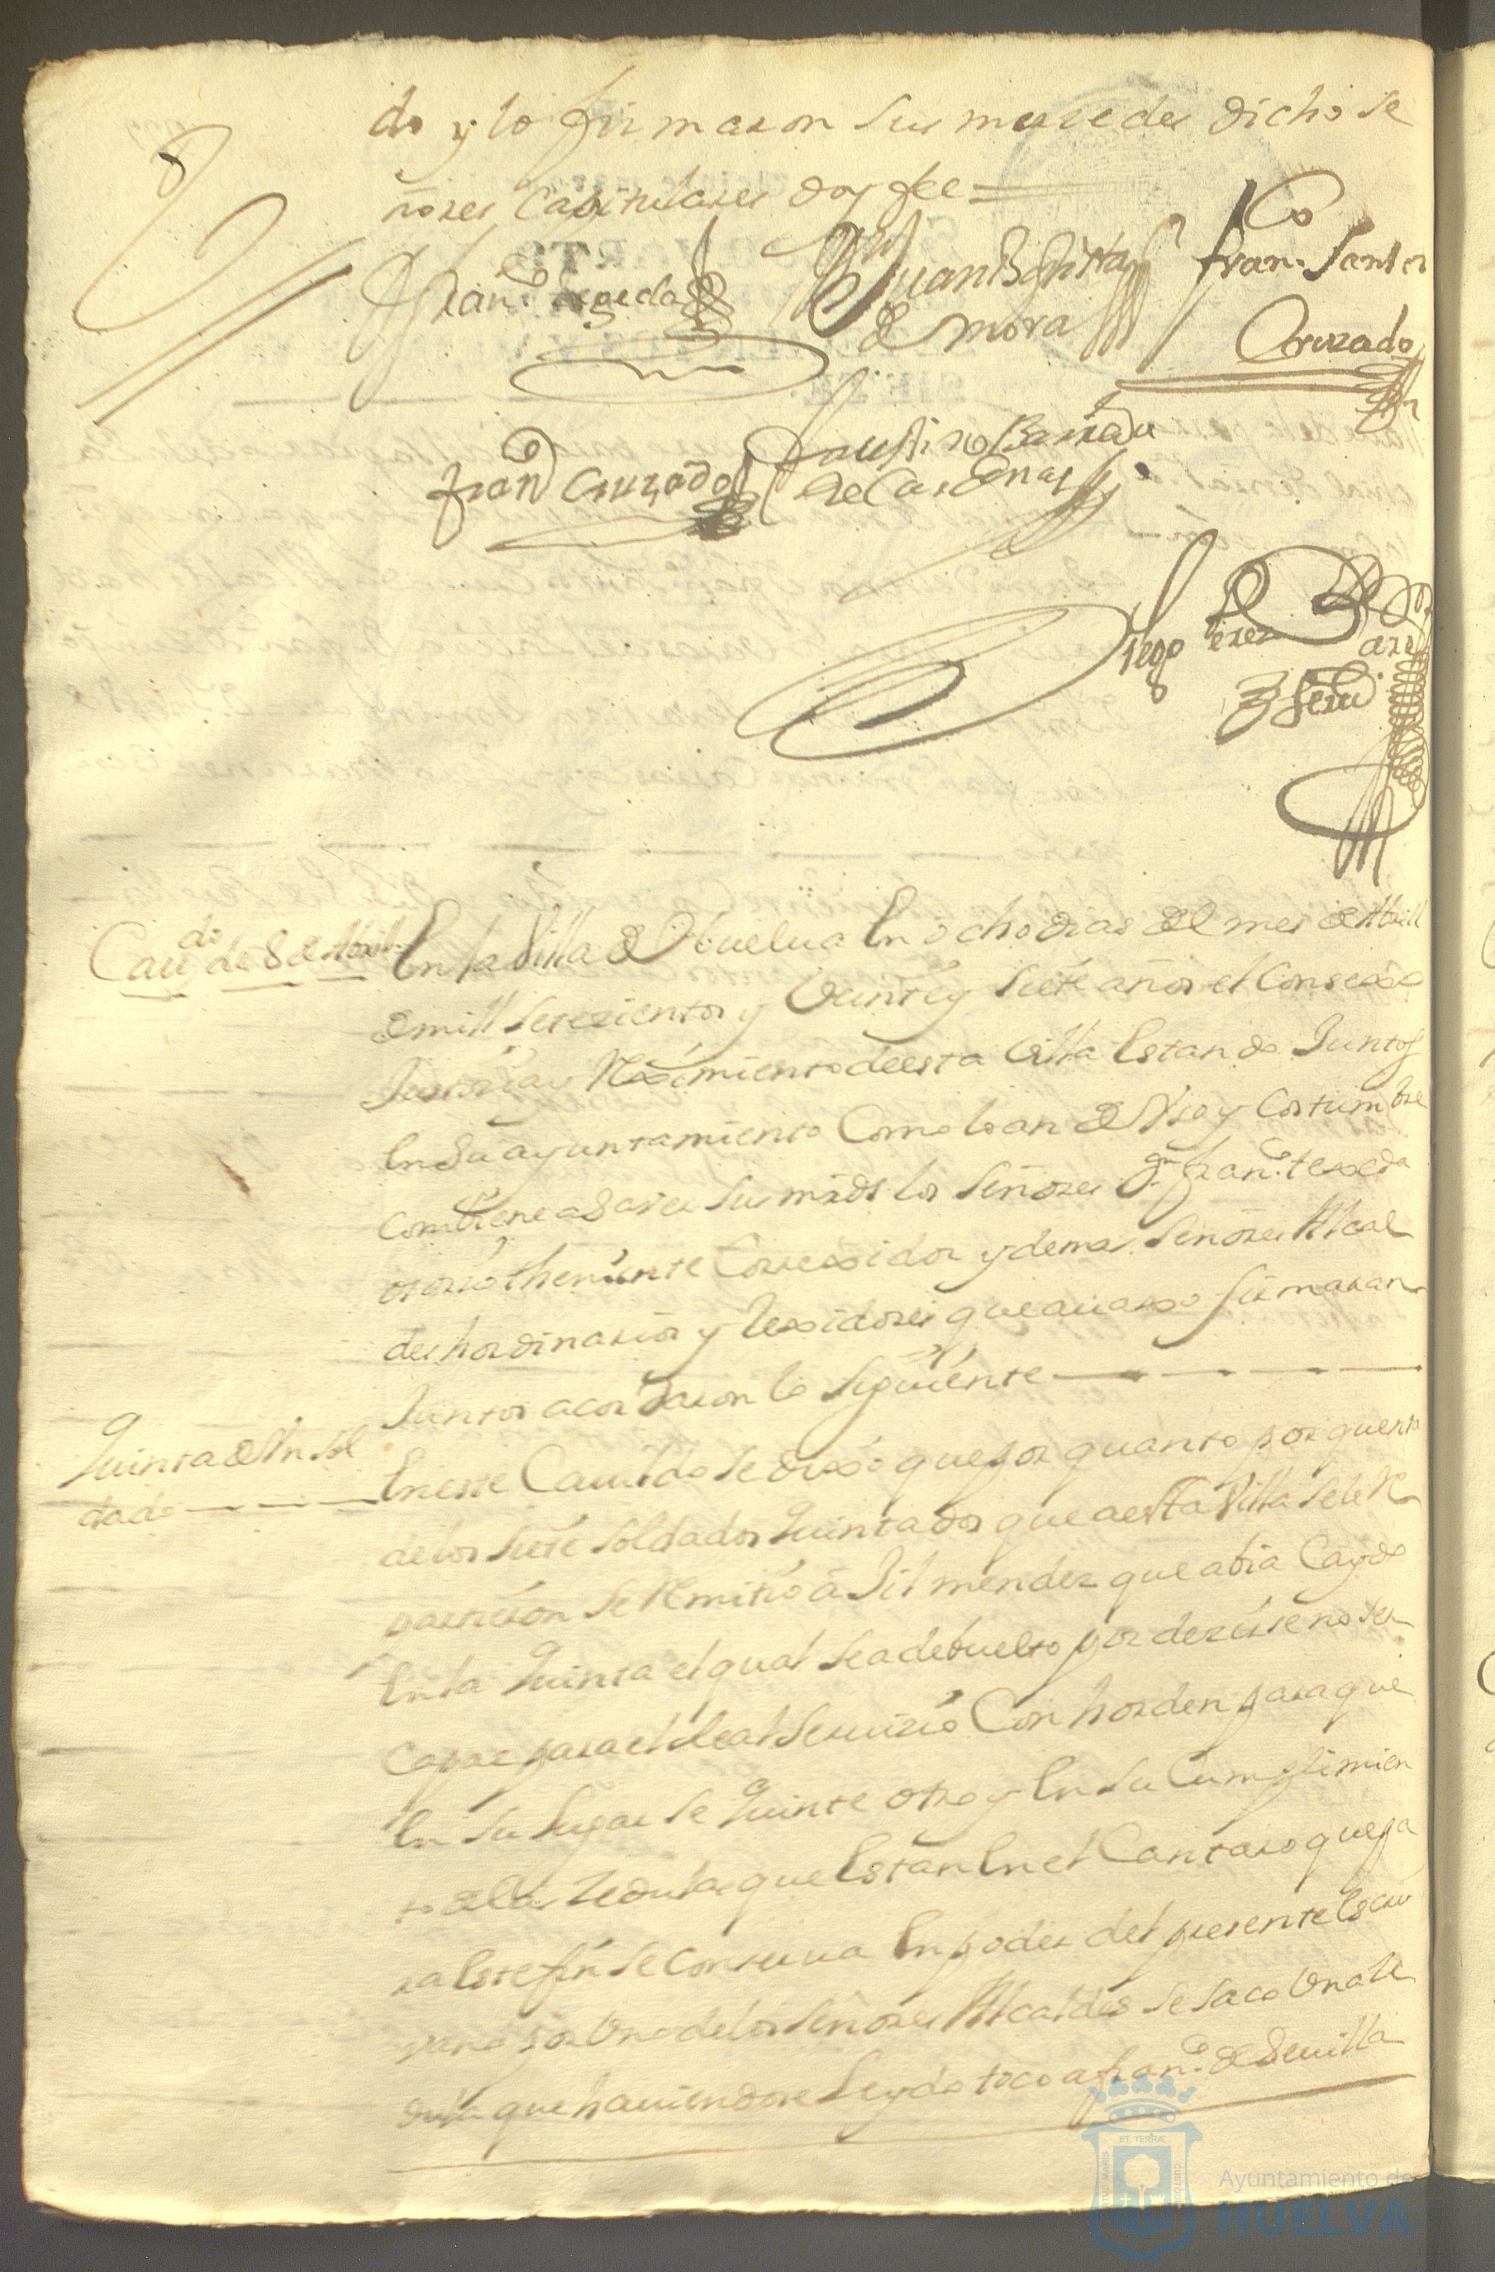 do y lo firmaron sus mersedes dicho se
ñores Capitulares doy fee =
Fran.co Texeda
Juan Baptista
de Mora
fran.co Santos
Cruzado
fran.co Cruzado
faustino Bernardo
de Cardenas
Diego Perez
Esscri.
Cau.do de 8 de Abril
En la Villa de Huelua En ocho dias del mes de Abrill
de mill setezientos y Veinte y siete años el Consexo
Justizia y Reximiento de esta Villa Estando Juntos
En su ayuntamiento Como lo an de Uso y Costumbre
combiene a sauer sus mrds los señores Dn fran.co texeda
osorio theniente Correxidor y demas señores Alcal
des hordinarios y Rexidores que auaxo firmaran
Juntos acordaron lo siguiente
Quinta de Un sol
dado
En este Cauildo se dixo que por quanto por quenta
de los siete soldados quintados que a esta Villa se le Re
partieron se Remitio a Gil mendez que abia Caydo
En la Quinta el qual se a debuelto por dezirse no ser
Capaz para el Real Seruizio Con horden para que
En su lugar se quinte otro y En su Cumplimien
to de las Zedulas que Estan En el Cantaro que pa
ra Este fin se conserua En poder del presente Escri
vano por Uno de los señores Alcaldes se saco Una Ze
dula que hauiendose Leydo toco a fran.co de Seuilla
Ayuntamiento de
HUELVA